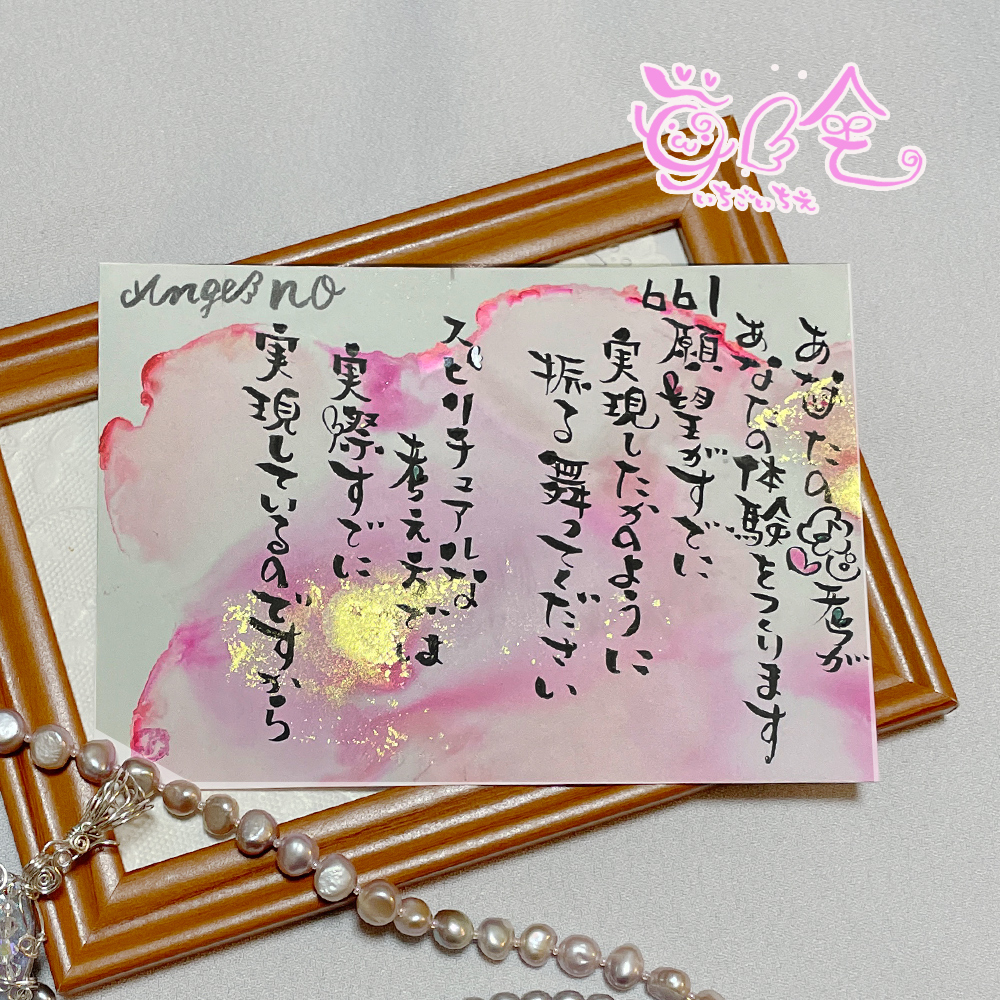 Angel no
661
あなたの思考が
あなたの体験をつくります
願望がすでに
実現したかのように
振る舞ってください
スピリチュアルな
考え方では
実際すでに
実現しているのですから
いちごいちえ